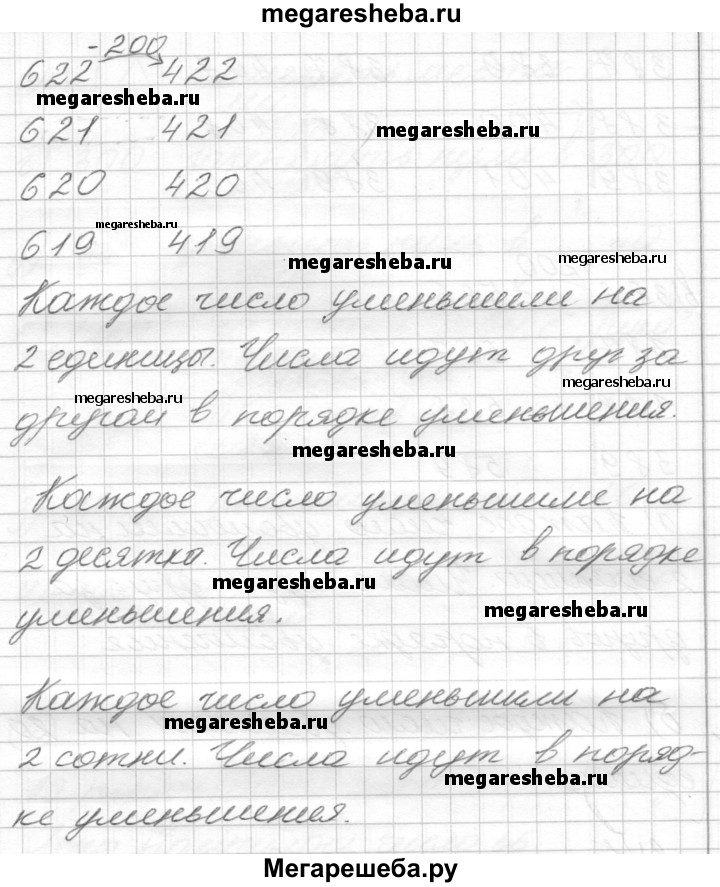 megaresheba.ru
-200
622 422
megaresheba.ru
621 421 megaresheba.ru
620 420
megaresheba.ru
619 419 megaresheba.ru megaresheba.ru
Каждое число уменьшили на
2 единицы. Числа идут друг за
megaresheba.ru megaresheba.ru
другом в порядке уменьшения.
megaresheba.ru
Каждое число уменьшили на
2 десятка. Числа идут в порядке
megaresheba.ru megaresheba.ru
уменьшения.
Каждое число уменьшили на
megaresheba.ru
2 сотни. Числа идут в поряд-
megaresheba.ru
ке уменьшения.
Мегарешеба.ру